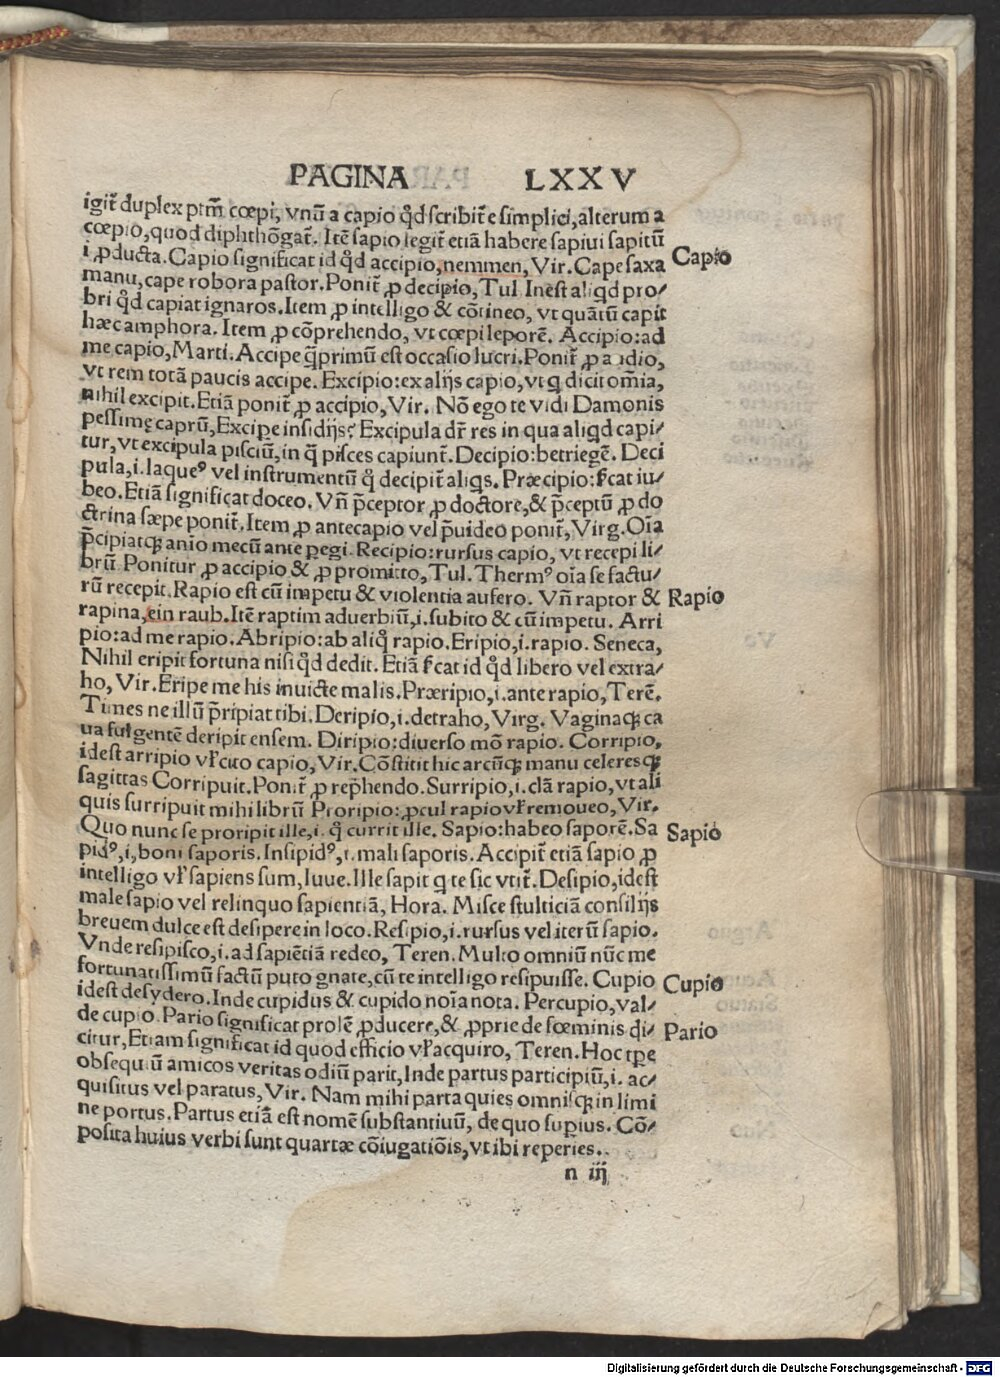 PAGINA LXXV
igit̃ duplex ptm̃ cœpi, vnũ a capio qđ scribit̃ e simplici, alterum a
cœpio, quod diphthõgat̃. Itẽ sapio legit̃ etiã habere sapiui sapitũ
i ꝓducta. Capio significat id qđ accipio, nemmen, Vir. Cape saxa
manu, cape robora pastor. Ponit̃ ꝓ decipio, Tul. Inest aliqd pro/
bri qđ capiat ignaros. Item ꝓ intelligo & cõtineo, vt quãtũ capit
hæc amphora. Item ꝓ cõprehendo, vt cœpi leporẽ. Accipio: ad
me capio, Marti. Accipe q̃primũ est occasio lucri. Ponit̃ ꝓ audio,
vt rem totã paucis accipe. Excipio: ex alijs capio, vt q dicit om̃ia,
nihil excipit. Etiã ponit̃ ꝓ accipio, Vir. Nõ ego te vidi Damonis
pessime caprũ, Excipe insidijs? Excipula dr̃ res in qua aliqd capi/
tur, vt excipula pisciũ, in q̃ pisces capiunt̃. Decipio: betriegẽ. Deci
pula, i. laqueꝰ vel instrumentũ q̃ decipit̃ aliqs. Præcipio: fcat iu/
beo. Etiã significat doceo. Vñ p̃ceptor ꝓ doctore, & p̃ceptũ ꝓ do
ctrina sæpe ponit̃. Item ꝓ antecapio vel p̃uideo ponit̃, Virg. Oĩa
p̃cipiatꝙ anio mecũ ante pegi. Recipio: rursus capio, vt recepi li/
brũ Ponitur ꝓ accipio & ꝓ promitto, Tul. Thermꝰ oĩa se factu/
rũ recepit. Rapio est cũ impetu & violentia aufero. Vñ raptor &
rapina, ein raub. Itẽ raptim aduerbiũ, i. subito & cũ impetu. Arri
pio: ad me rapio. Abripio: ab aliq̃ rapio. Eripio, i. rapio. Seneca,
Nihil eripit fortuna nisi qđ dedit. Etiã fcat id qđ libero vel extra/
ho, Vir. Eripe me his inuicte malis. Præripio, i. ante rapio, Terẽ.
Times ne illũ p̃ripiat tibi. Deripio, i. detraho, Virg. Vaginaꝙ ca
ua fulgentẽ deripit ensem. Diripio: diuerso mõ rapio. Corripio,
idest arripio vł cito capio, Vir. Cõstitit hic arcũꝙ manu celeresꝙ
sagittas Corripuit. Ponit̃ ꝓ rep̃hendo. Surripio, i. clã rapio, vt ali
quis surripuit mihi librũ Proripio: ꝓcul rapio vł remoueo, Vir.
Quo nunc se proripit ille, i. q̃ currit ille. Sapio: habeo saporẽ. Sa
pidꝰ, i, boni saporis. Insipidꝰ, i. mali saporis. Accipit̃ etiã sapio ꝓ
intelligo vł sapiens sum, Iuue. Ille sapit q te sic vtit̃. Desipio, idest
male sapio vel relinquo sapientiã, Hora. Misce stulticiã consilijs
breuem dulce est desipere in loco. Resipio, i. rursus vel iterũ sapio.
Vnde resipisco, i. ad sapiẽtiã redeo, Teren. Multo omniũ nũc me
fortunatissimũ factũ puto gnate, cũ te intelligo resipuisse. Cupio
idest desydero. Inde cupidus & cupido noĩa nota. Percupio, val/
de cupio. Pario significat prolẽ ꝓducere, & ꝓprie de fœminis di/
citur, Etiam significat id quod efficio vł acquiro, Teren. Hoc tꝑe
obsequiũ amicos veritas odiũ parit, Inde partus participiũ, i. ac/
quisitus vel paratus, Vir. Nam mihi parta quies omnisꝙ in limi
ne portus. Partus etiã est nomẽ substantiuũ, de quo supius. Cõ/
posita huius verbi sunt quartæ cõiugatiõis, vt ibi reperies.
n iij
Capio
Rapio
Sapio
Cupio
Pario
Digitalisierung gefördert durch die Deutsche Forschungsgemeinschaft - DFG